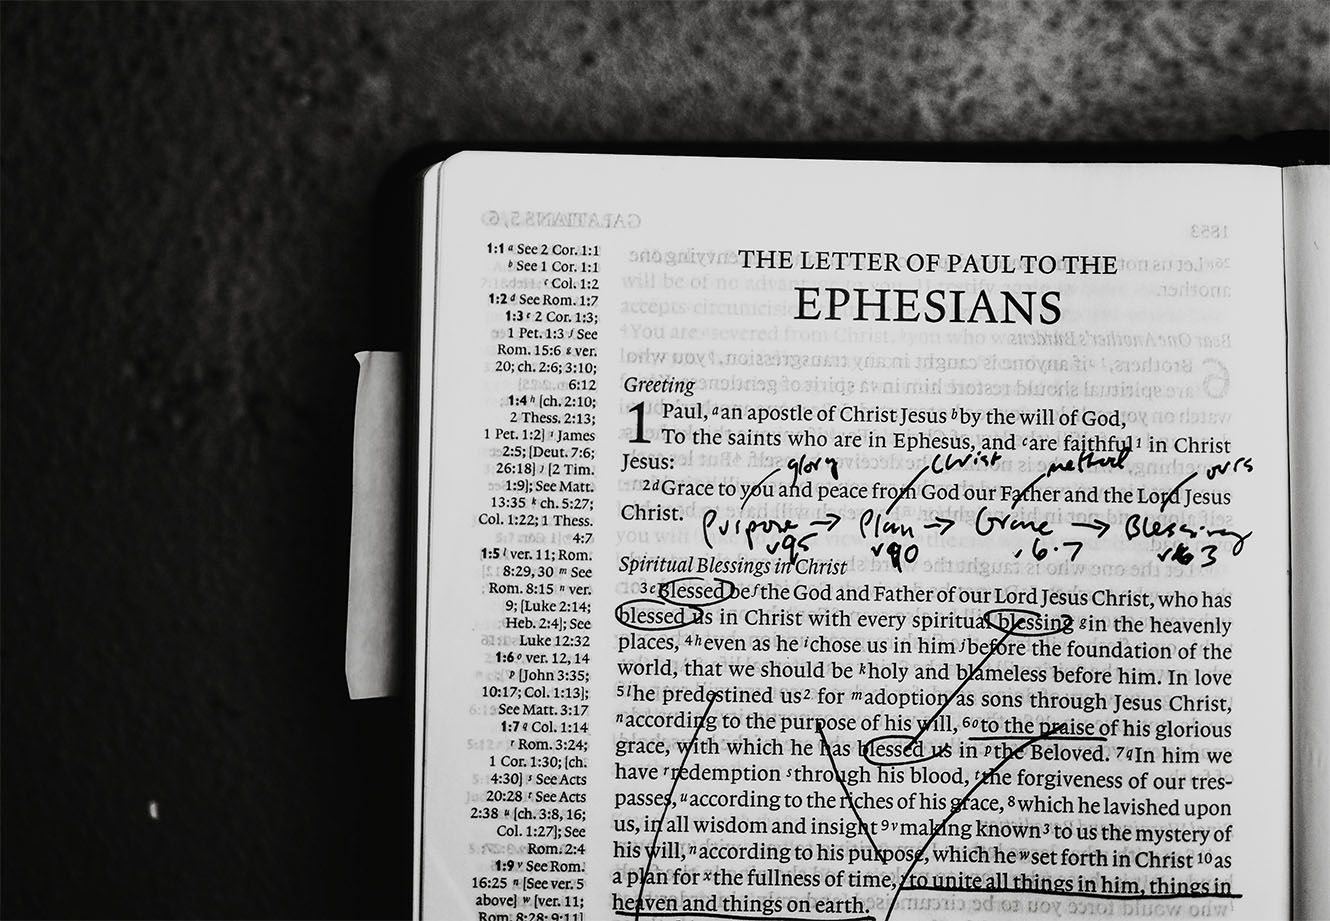 THE LETTER OF PAUL TO THE
EPHESIANS
Greeting
1 Paul, a an apostle of Christ Jesus b by the will of God,
To the saints who are in Ephesus, and c are faithful 1 in Christ
Jesus:
glory Christ method ours
2 d Grace to you and peace from God our Father and the Lord Jesus
Christ.
Purpose → Plan → Grace → Blessing
6.7
Spiritual Blessings in Christ
3 e Blessed be f the God and Father of our Lord Jesus Christ, who has
blessed us in Christ with every spiritual blessing g in the heavenly
places, 4 h even as he i chose us in him j before the foundation of the
world, that we should be k holy and blameless before him. In love
5 l he predestined us 2 for m adoption as sons through Jesus Christ,
n according to the purpose of his will, 6 o to the praise of his glorious
grace, with which he has blessed us in p the Beloved. 7 q In him we
have r redemption s through his blood, t the forgiveness of our tres-
passes, u according to the riches of his grace, 8 which he lavished upon
us, in all wisdom and insight 9 v making known 3 to us the mystery of
his will, n according to his purpose, which he w set forth in Christ 10 as
a plan for x the fullness of time, y to unite all things in him, things in
heaven and things on earth.
1:1 a See 2 Cor. 1:1
b See 1 Cor. 1:1
c Col. 1:2
1:2 d See Rom. 1:7
1:3 e 2 Cor. 1:3;
1 Pet. 1:3 f See
Rom. 15:6 g ver.
20; ch. 2:6; 3:10;
6:12
1:4 h [ch. 2:10;
2 Thess. 2:13;
1 Pet. 1:2] i James
2:5; [Deut. 7:6;
26:18] j [2 Tim.
1:9]; See Matt.
13:35 k ch. 5:27;
Col. 1:22; 1 Thess.
4:7
1:5 l ver. 11; Rom.
8:29, 30 m See
Rom. 8:15 n ver.
9; [Luke 2:14;
Heb. 2:4]; See
Luke 12:32
1:6 o ver. 12, 14
p [John 3:35;
10:17; Col. 1:13];
See Matt. 3:17
1:7 q Col. 1:14
r Rom. 3:24;
1 Cor. 1:30; [ch.
4:30] s See Acts
20:28 t See Acts
2:38 u [ch. 3:8, 16;
Col. 1:27]; See
Rom. 2:4
1:9 v See Rom.
16:25 n [See ver. 5
above] w [ver. 11;
Rom. 8:28; 9:11]